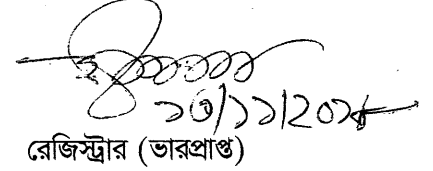 ১৩/১১/২০১৮
রেজিস্ট্রার (ভারপ্রাপ্ত)